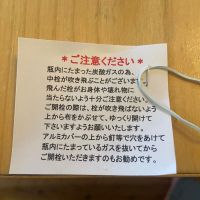 ＊ご注意ください＊
瓶内にたまった炭酸ガスの為、
中栓が吹き飛ぶことがございます。
飛んだ栓がお身体や壊れ物に
当たらないよう十分ご注意ください。
ご開栓の際は、栓が吹き飛ばないよう
上から布をかぶせて、ゆっくり開けて
下さいますようお願いいたします。
アルミカバーの上から釘等で穴をあけて
瓶内にたまっているガスを抜いてから
ご開栓いただきますのもお勧めです。